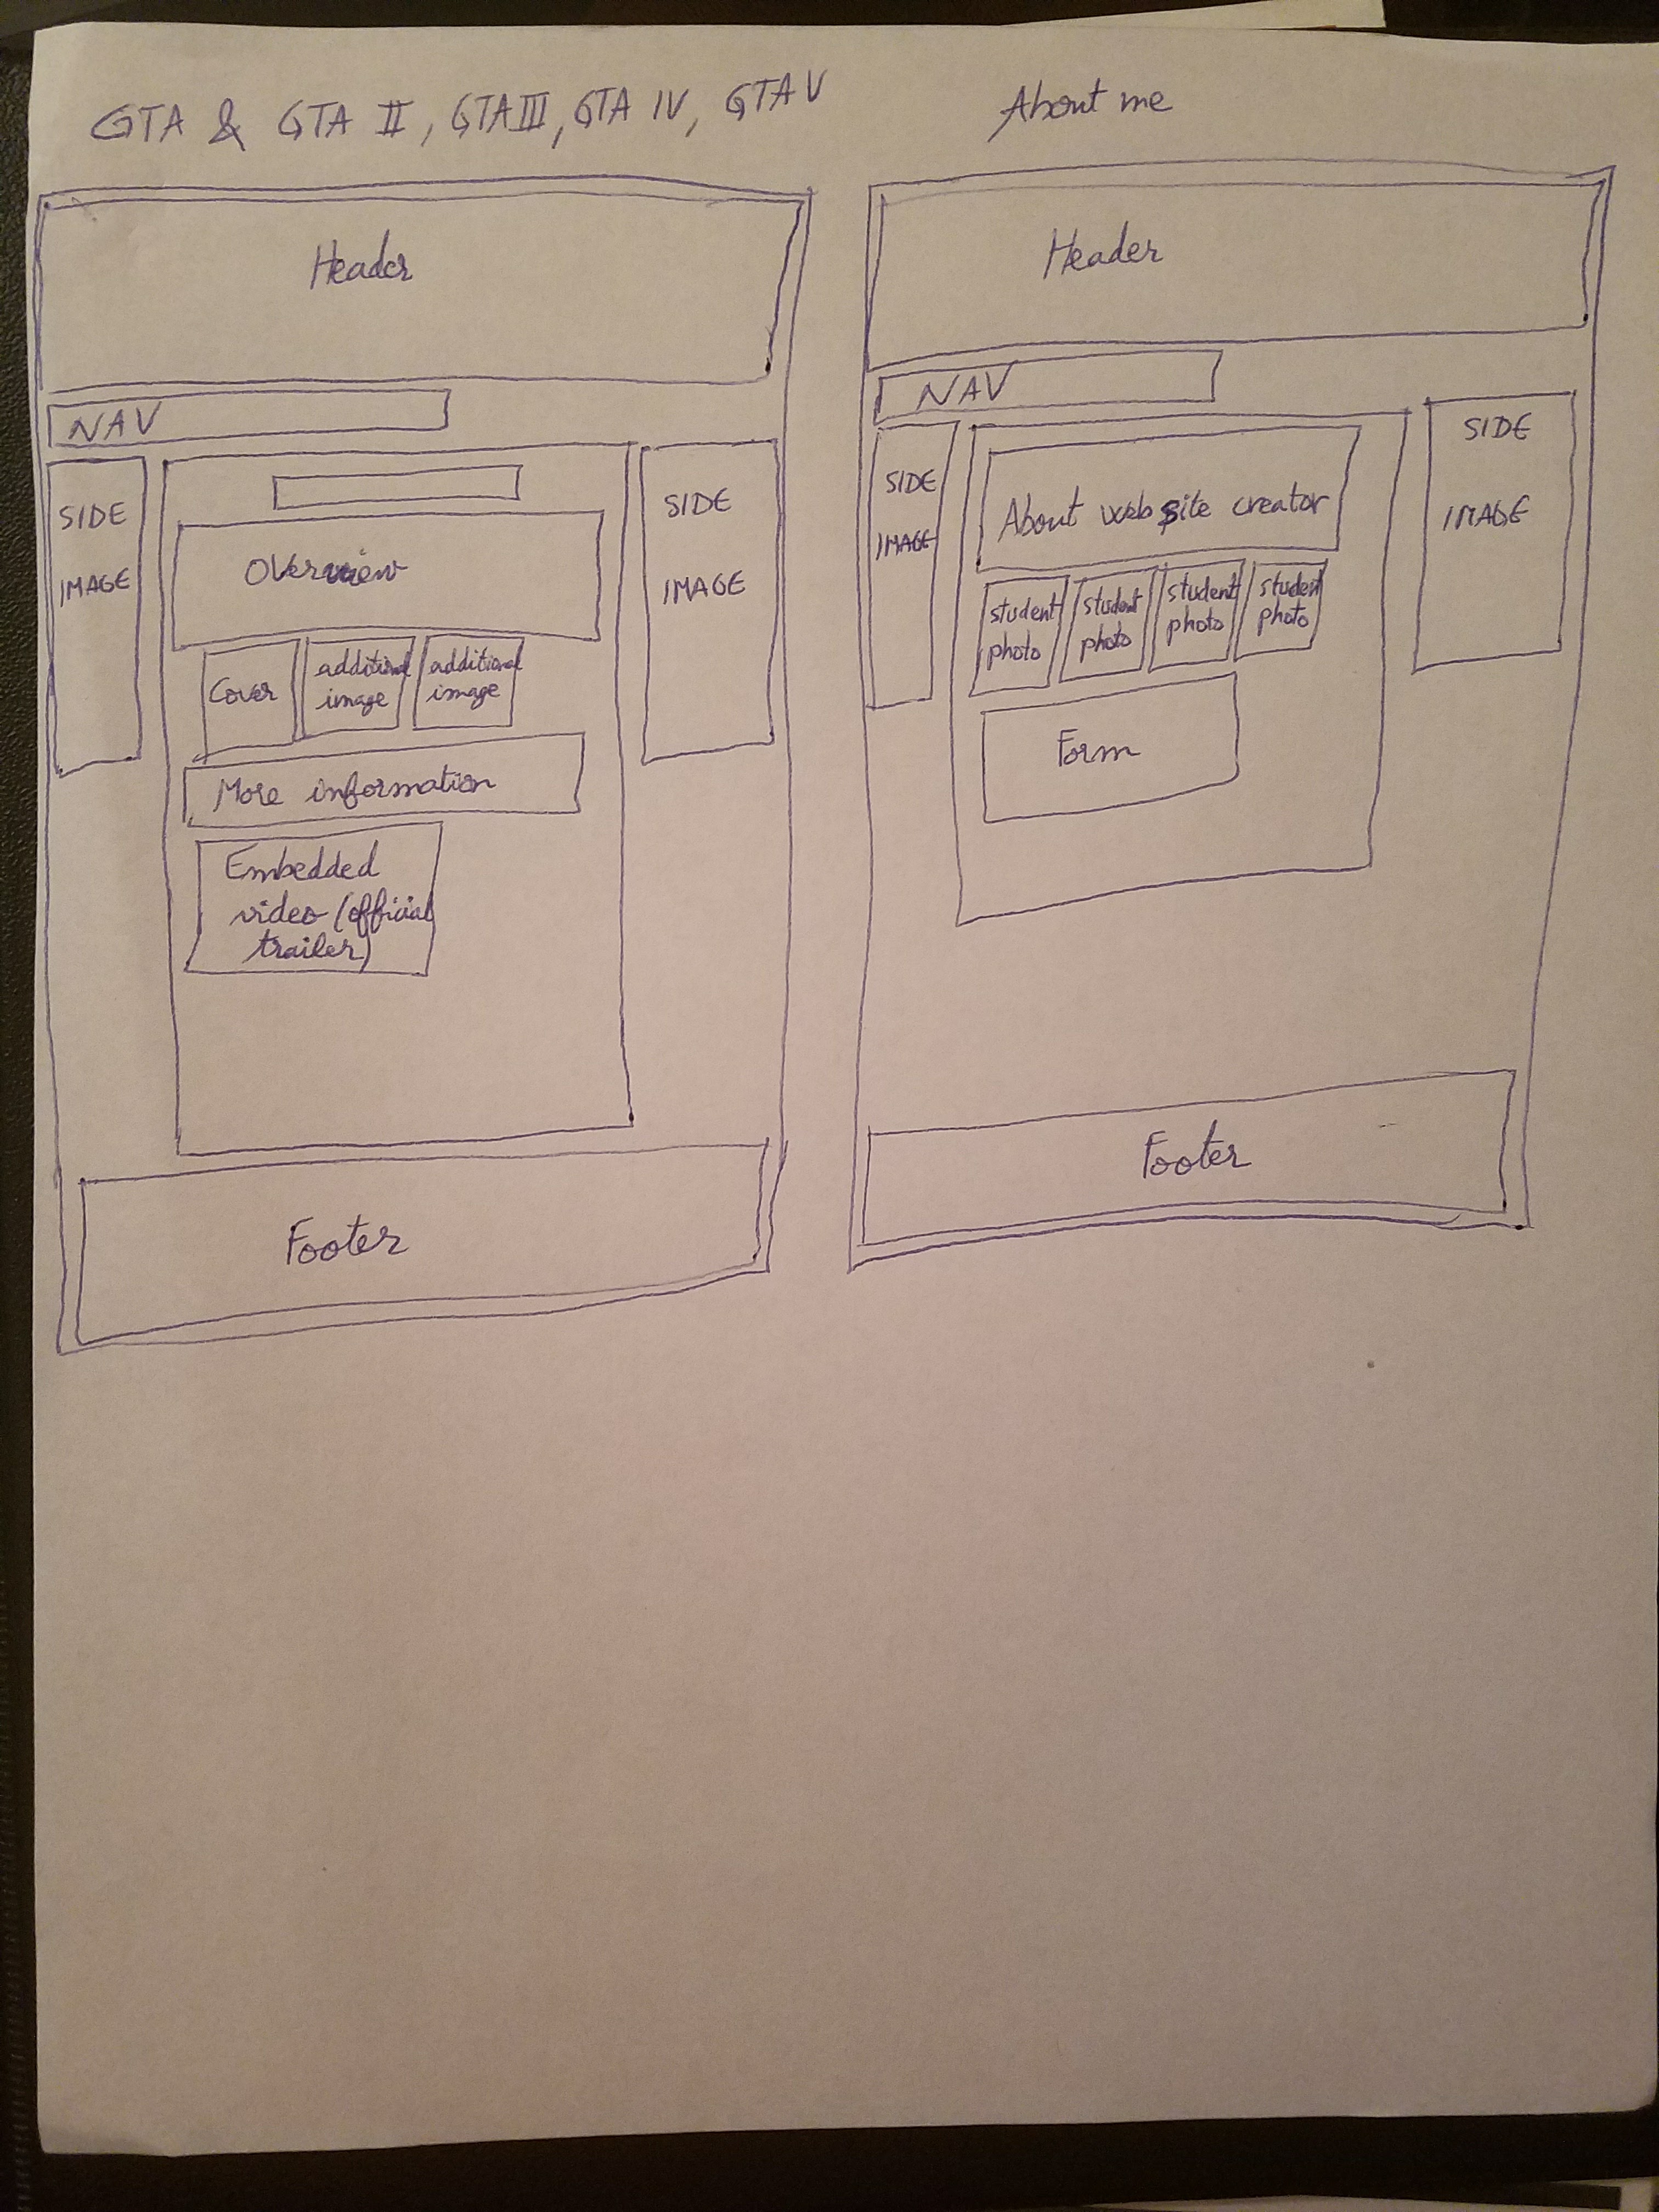 GTA & GTA II, GTA III, GTA IV, GTA V
Header
NAV
SIDE
IMAGE
Overview
Cover
additional
image
additional
image
More information
Embedded
video (official
trailer)
SIDE
IMAGE
Footer
About me
Header
NAV
SIDE
IMAGE
About web site creator
student
photo
student
photo
student
photo
student
photo
Form
SIDE
IMAGE
Footer